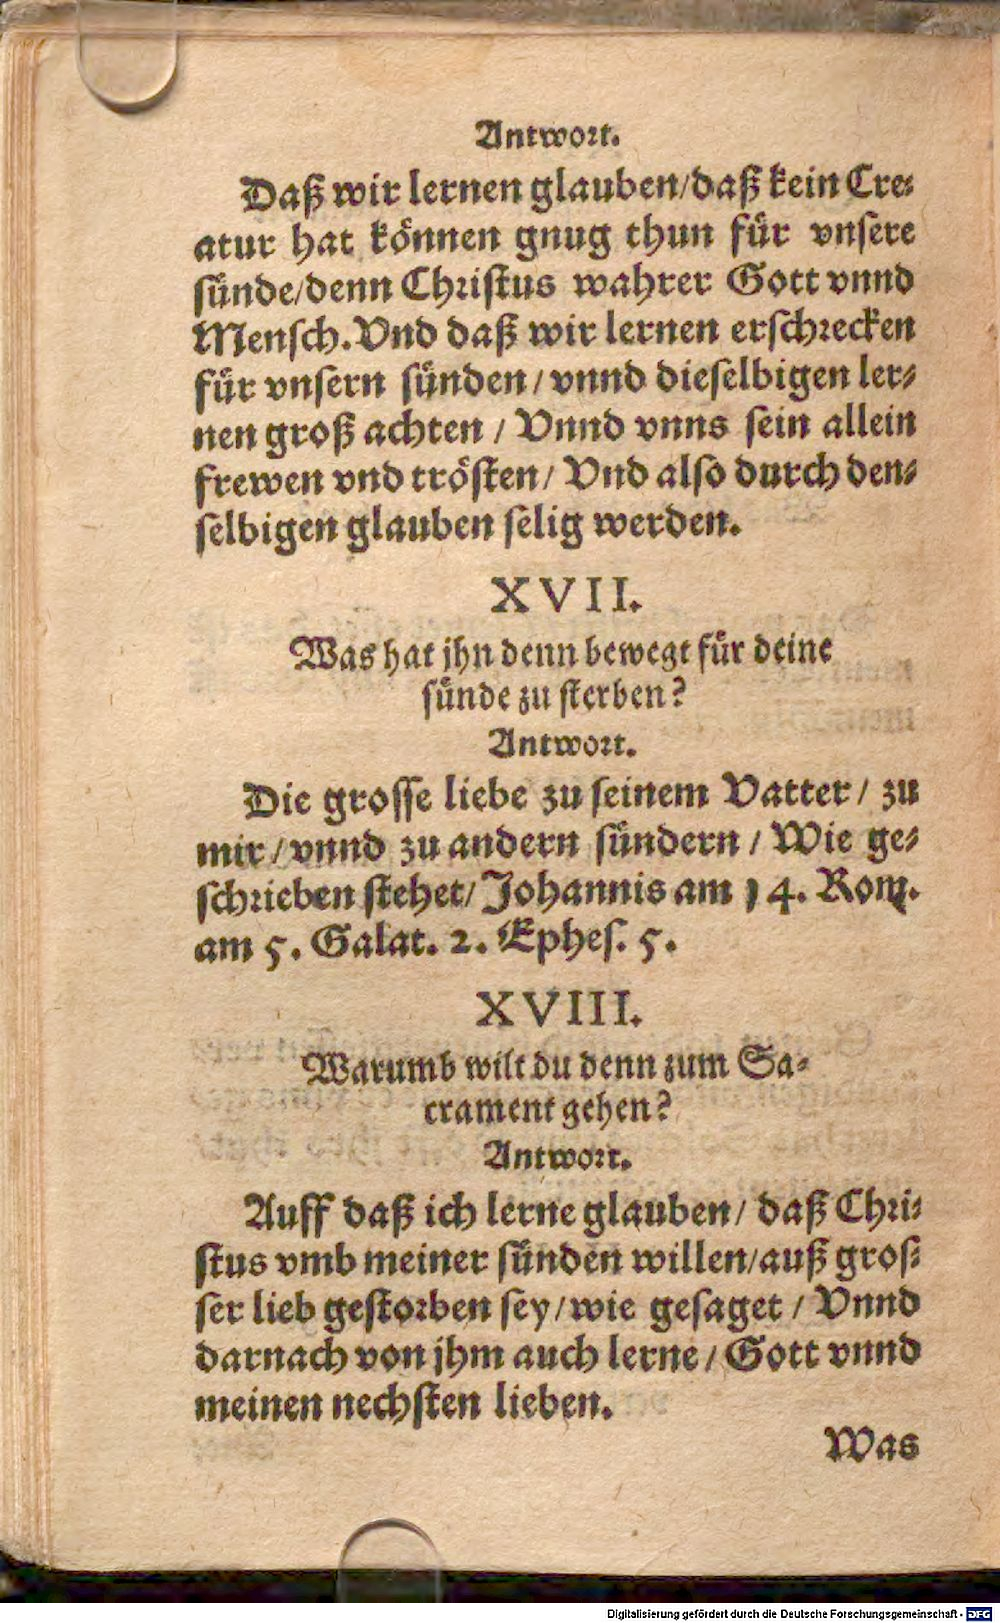 Antwort.
Daß wir lernen glauben/daß kein Cre-
atur hat können gnug thun für vnsere
sünde/denn Christus wahrer Gott vnnd
Mensch. Vnd daß wir lernen erschrecken
für vnsern sünden/vnnd dieselbigen ler-
nen groß achten/Vnnd vnns sein allein
frewen vnd trösten/Vnd also durch den-
selbigen glauben selig werden.
XVII.
Was hat jhn denn bewegt für deine
sünde zu sterben?
Antwort.
Die grosse liebe zu seinem Vatter/zu
mir/vnnd zu andern sündern/Wie ge-
schrieben stehet/Johannis am 14. Rom.
am 5. Galat. 2. Ephes. 5.
XVIII.
Warumb wilt du denn zum Sa-
crament gehen?
Antwort.
Auff daß ich lerne glauben/daß Chri-
stus vmb meiner sünden willen/auß gros-
ser lieb gestorben sey/wie gesaget/Vnnd
darnach von jhm auch lerne/Gott vnnd
meinen nechsten lieben.
Was
Digitalisierung gefördert durch die Deutsche Forschungsgemeinschaft - DFG